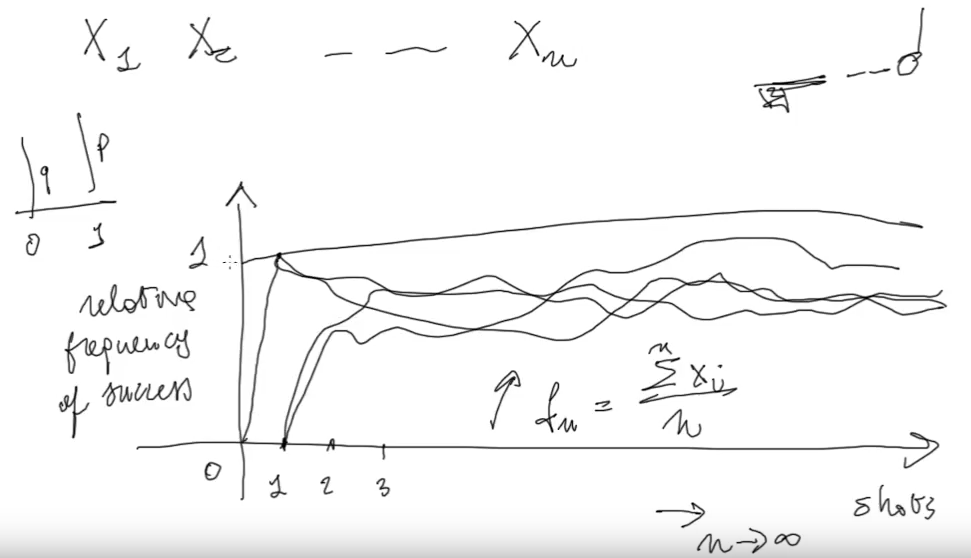 X₁ X₂ - — Xₙ
q p
0 1
1
relative
frequency
of success
fₙ = ∑ⁿ xᵢ / n
0 1 2 3
shots
→ n→∞